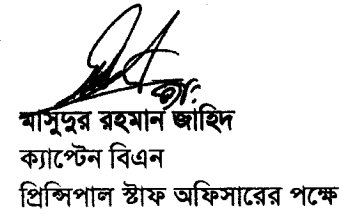 মাসুদুর রহমান জাহিদ
ক্যাপ্টেন বিএন
প্রিন্সিপাল স্টাফ অফিসারের পক্ষে